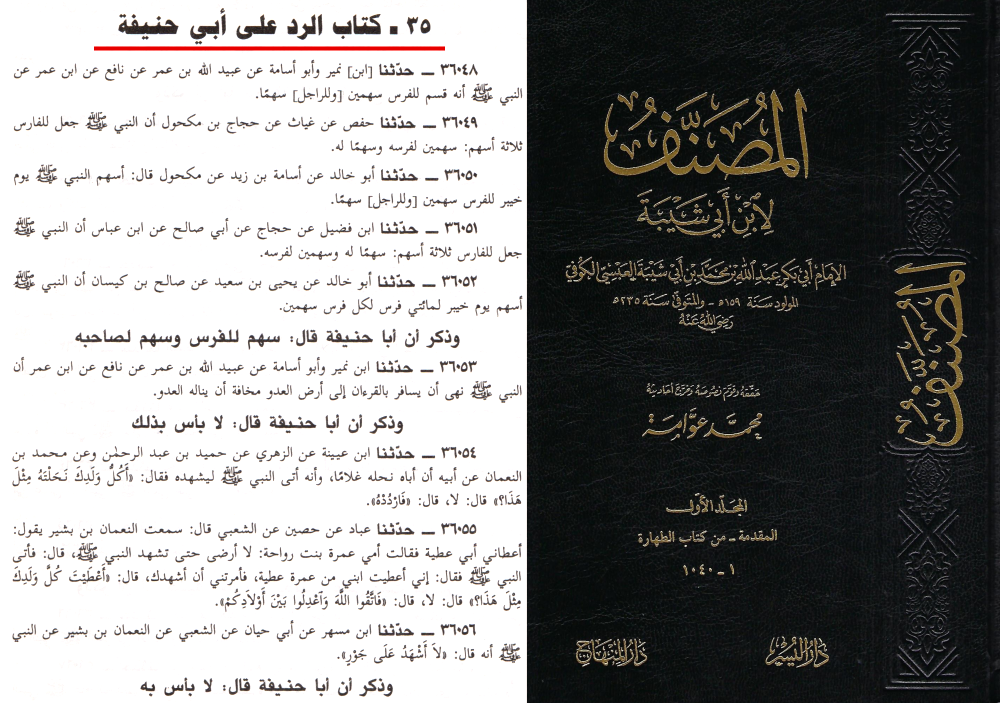 ٣٥ ـ كتاب الرد على أبي حنيفة
٣٦٠٤٨ ــ حدّثنا [ابن] نمير وأبو أسامة عن عبيد الله بن عمر عن نافع عن ابن عمر عن
النبي ﷺ أنه قسم للفرس سهمين [وللراجل] سهمًا.
٣٦٠٤٩ ــ حدّثنا حفص عن غياث عن حجاج بن مكحول أن النبي ﷺ جعل للفارس
ثلاثة أسهم: سهمين لفرسه وسهمًا له.
٣٦٠٥٠ ــ حدّثنا أبو خالد عن أسامة بن زيد عن مكحول قال: أسهم النبي ﷺ يوم
خيبر للفرس سهمين [وللراجل] سهمًا.
٣٦٠٥١ ــ حدّثنا ابن فضيل عن حجاج عن أبي صالح عن ابن عباس أن النبي ﷺ
جعل للفارس ثلاثة أسهم: سهمًا له وسهمين لفرسه.
٣٦٠٥٢ ــ حدّثنا أبو خالد عن يحيى بن سعيد عن صالح بن كيسان أن النبي ﷺ
أسهم يوم خيبر لمائتي فرس لكل فرس سهمين.
وذكر أن أبا حنيفة قال: سهم للفرس وسهم لصاحبه
٣٦٠٥٣ ــ حدّثنا ابن نمير وأبو أسامة عن عبيد الله بن عمر عن نافع عن ابن عمر أن
النبي ﷺ نهى أن يسافر بالقرءان إلى أرض العدو مخافة أن يناله العدو.
وذكر أن أبا حنيفة قال: لا بأس بذلك
٣٦٠٥٤ ــ حدّثنا ابن عيينة عن الزهري عن حميد بن عبد الرحمٰن وعن محمد بن
النعمان عن أبيه أن أباه نحله غلامًا، وأنه أتى النبي ﷺ ليشهده فقال: «أَكُلَّ وَلَدِكَ نَحَلْتَهُ مِثْلَ
هَذَا؟» قال: لا، قال: «فَارْدُدْهُ».
٣٦٠٥٥ ــ حدّثنا عباد عن حصين عن الشعبي قال: سمعت النعمان بن بشير يقول:
أعطاني أبي عطية فقالت أمي عمرة بنت رواحة: لا أرضى حتى تشهد النبي ﷺ، قال: فأتى
النبي ﷺ فقال: إني أعطيت ابني من عمرة عطية، فأمرتني أن أشهدك، قال: «أَعْطَيْتَ كُلَّ وَلَدِكَ
مِثْلَ هَذَا؟» قال: لا، قال: «فَاتَّقُوا اللَّهَ وَاعْدِلُوا بَيْنَ أَوْلَادِكُمْ».
٣٦٠٥٦ ــ حدّثنا ابن مسهر عن أبي حيان عن الشعبي عن النعمان بن بشير عن النبي
ﷺ أنه قال: «لاَ أَشْهَدُ عَلَى جَوْرٍ».
وذكر أن أبا حنيفة قال: لا بأس به
المُصَنَّفُ
لِابْنِ أَبِي شَيْبَةَ
الإمام أبي بكر عبد الله بن محمد بن أبي شيبة العبسي الكوفي
المولود سنة ١٥٩هـ - والمتوفى سنة ٢٣٥هـ
رضي الله عنه
حققه وقوم نصوصه وخرج أحاديثه
محمد عوامة
المجلد الأول
المقدمة - من كتاب الطهارة
١ - ١٠٤٠
دار اليسر
دار المنهاج
المصنف